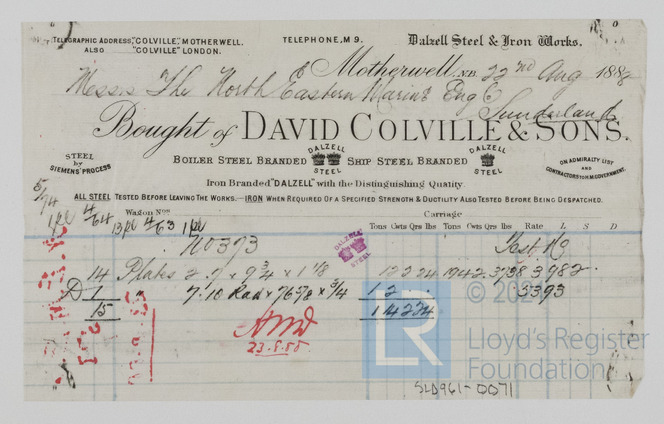 TELEGRAPHIC ADDRESS, "COLVILLE", MOTHERWELL.
ALSO "COLVILLE" LONDON.
TELEPHONE, M9.
Dalzell Steel & Iron Works.
Motherwell, N.B. 22nd Aug 1888
Messrs The North Eastern Marine Eng Co
Sunderland
Bought of DAVID COLVILLE & SONS.
STEEL
by
SIEMENS' PROCESS
BOILER STEEL BRANDED
DALZELL
STEEL
SHIP STEEL BRANDED
DALZELL
STEEL
ON ADMIRALTY LIST
AND
CONTRACTORS TO H.M. GOVERNMENT.
Iron Branded "DALZELL" with the Distinguishing Quality.
ALL STEEL TESTED BEFORE LEAVING THE WORKS.—IRON WHEN REQUIRED OF A SPECIFIED STRENGTH & DUCTILITY ALSO TESTED BEFORE BEING DESPATCHED.
5/74
1 pl 4/64 Wagon Nos 13 pl 4/63 1 pl
Carriage
Tons Cwts Qrs lbs Tons Cwts Qrs lbs Rate L S D
No 393
DALZELL
STEEL
Test No
14 Plates 2.9 × 9 3/4 × 1 1/8 3982
D 1 " 7.10 Rad × 76 5/8 × 3/4 1 2 5393
15
23.8.88
© 202
Lloyd's Register
Foundation
LR
SLD961-0071